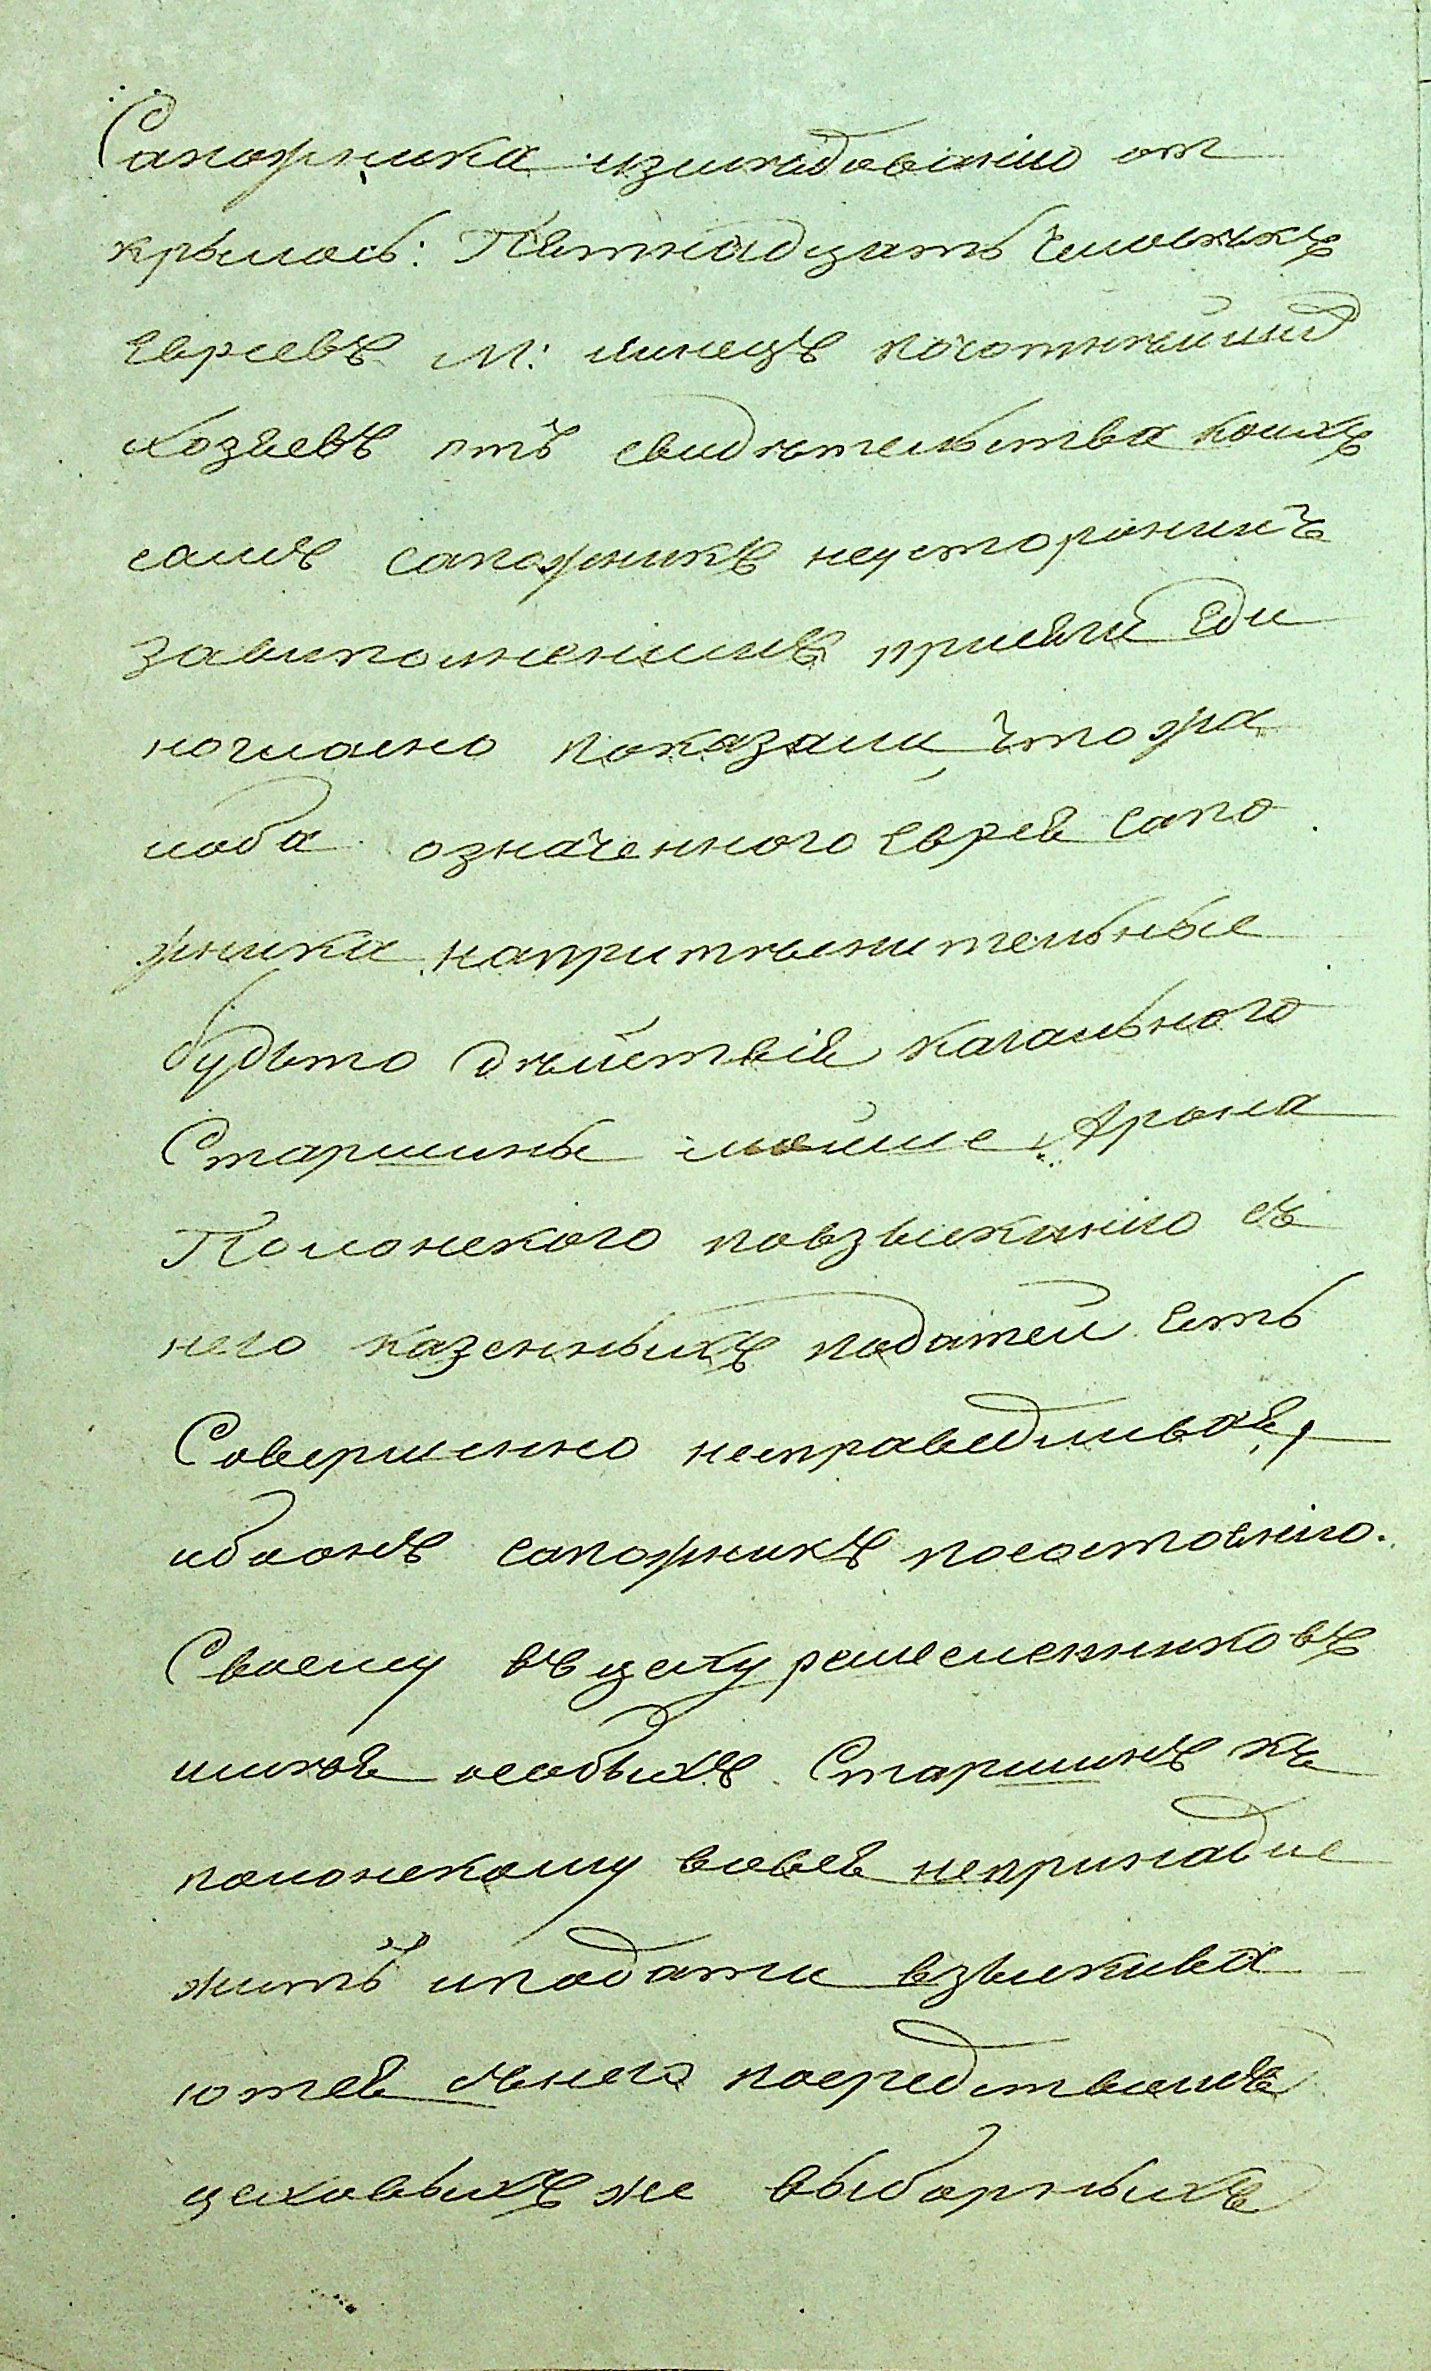 Сапожника изслѣдованію от
крылось: Пятнадцать человѣкъ
евреевъ М: Линецъ почотнѣйших
хозяевъ отъ свидѣтельства коихъ
самъ сапожникъ неусторонилъ
завыполненіемъ присяги еди
ногласно показали что жа
лоба означенного еврея сапо
жника напритѣснительные
будьто дѣйствія кагального
Старшины Мойше Арона
Полонского повзысканію съ
него казенныхъ податей есть
Совершенно несправедливая,
ибоонъ сапожникъ посостоянію
Своему въцеху ремесленниковъ
имѣя особыхъ Старшинъ къ
полонскому вовся непринадле
житъ иподати взыскива
ются снего посредствомъ
цеховыхъ же выборныхъ